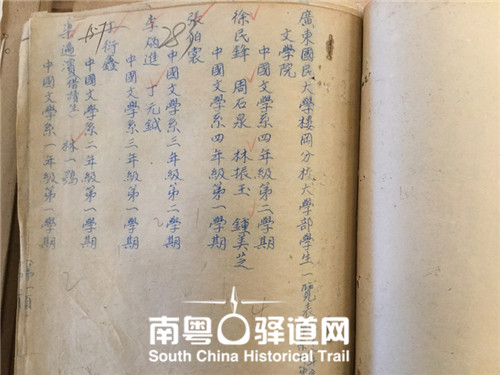 廣東國民大學樓岡分校大學部學生一覽表
文學院
中國文學系四年級第二學期
徐民鋒 周石泉 林振玉 鍾美芝
中國文學系四年級第一學期
張
中國文學系三年級第二學期
28
李炳進 丁元鉞
中國文學系三年級第一學期
衍鑫
中國文學系二年級第一學期
借讀生 林一鶚
中國文學系一年級第一學期
第一頁
南粤驿道网
South China Historical Trail